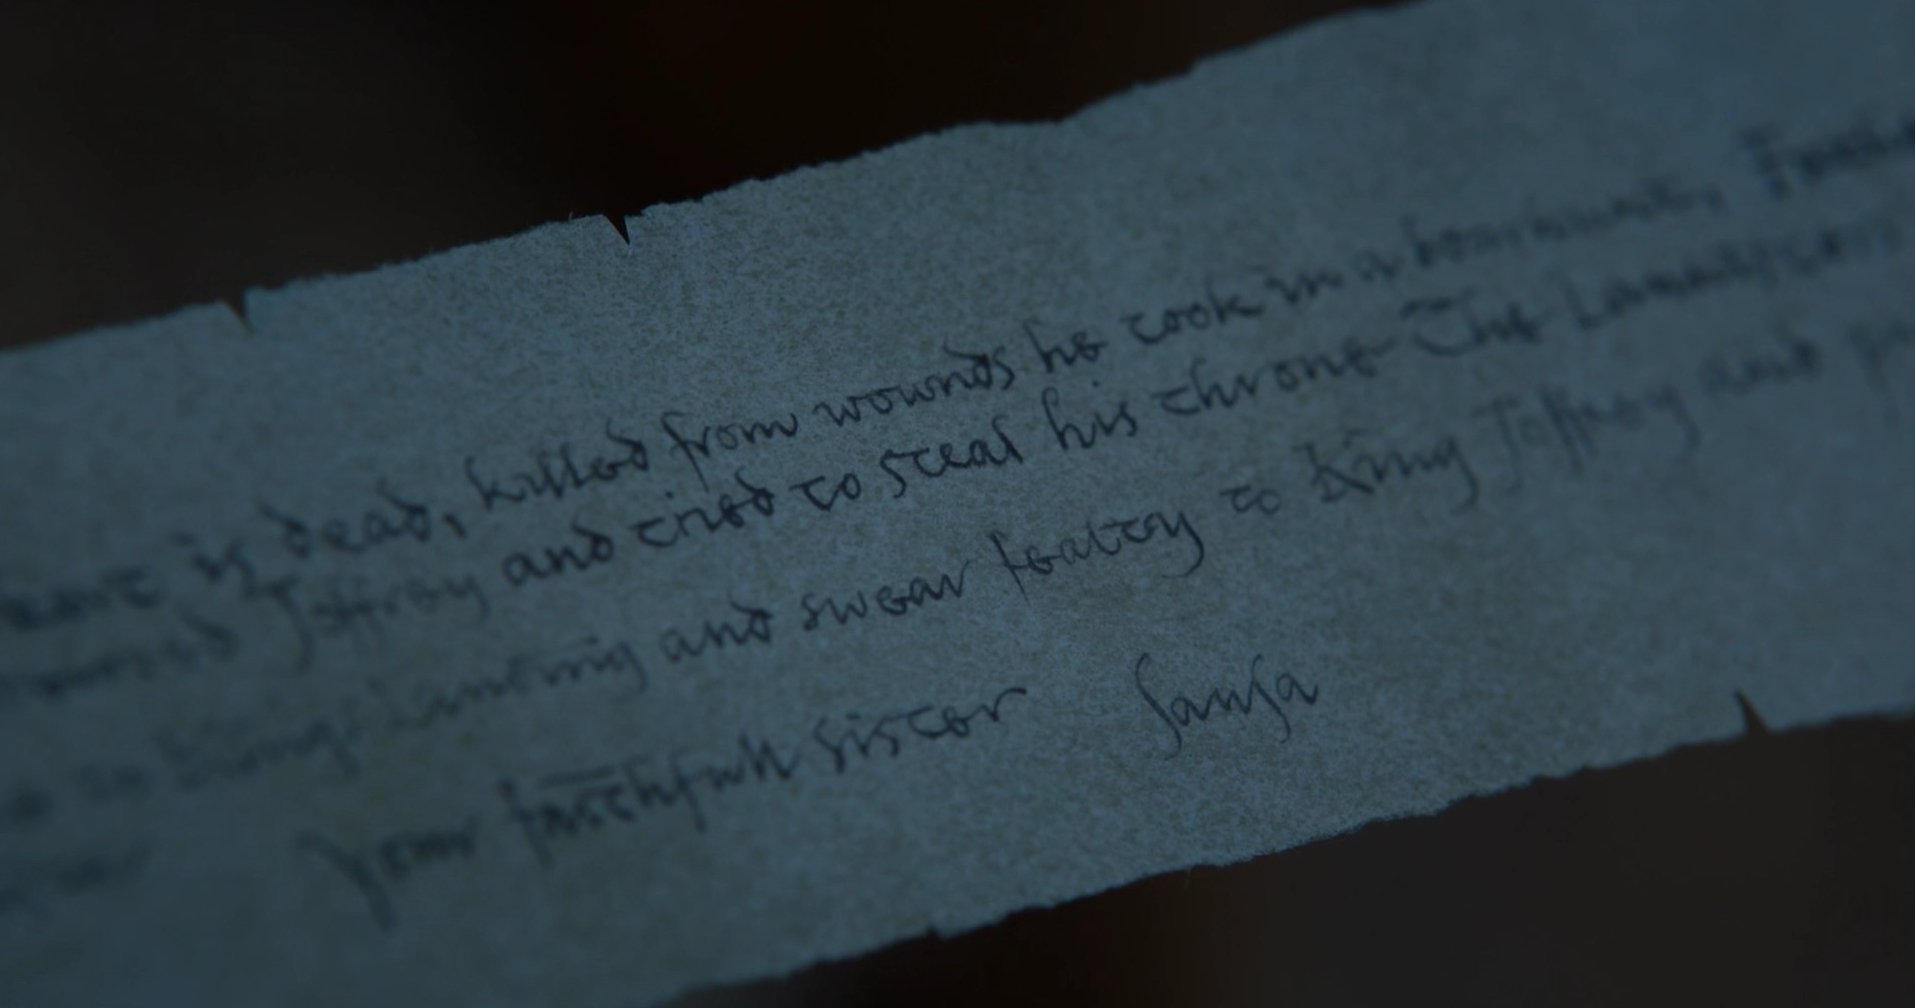 is dead, killed from wounds he took in a boarhunt. Father
Joffrey and tried to steal his throne The Lannisters
to Kings Landing and swear fealty to King Joffrey and
your faithfull sister Sansa